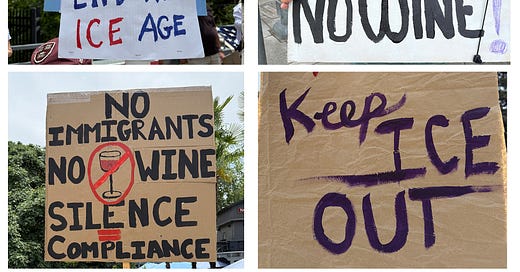 END
ICE AGE
NO WINE!
NO
IMMIGRANTS
NO WINE
SILENCE
=
COMPLIANCE
Keep
ICE
OUT